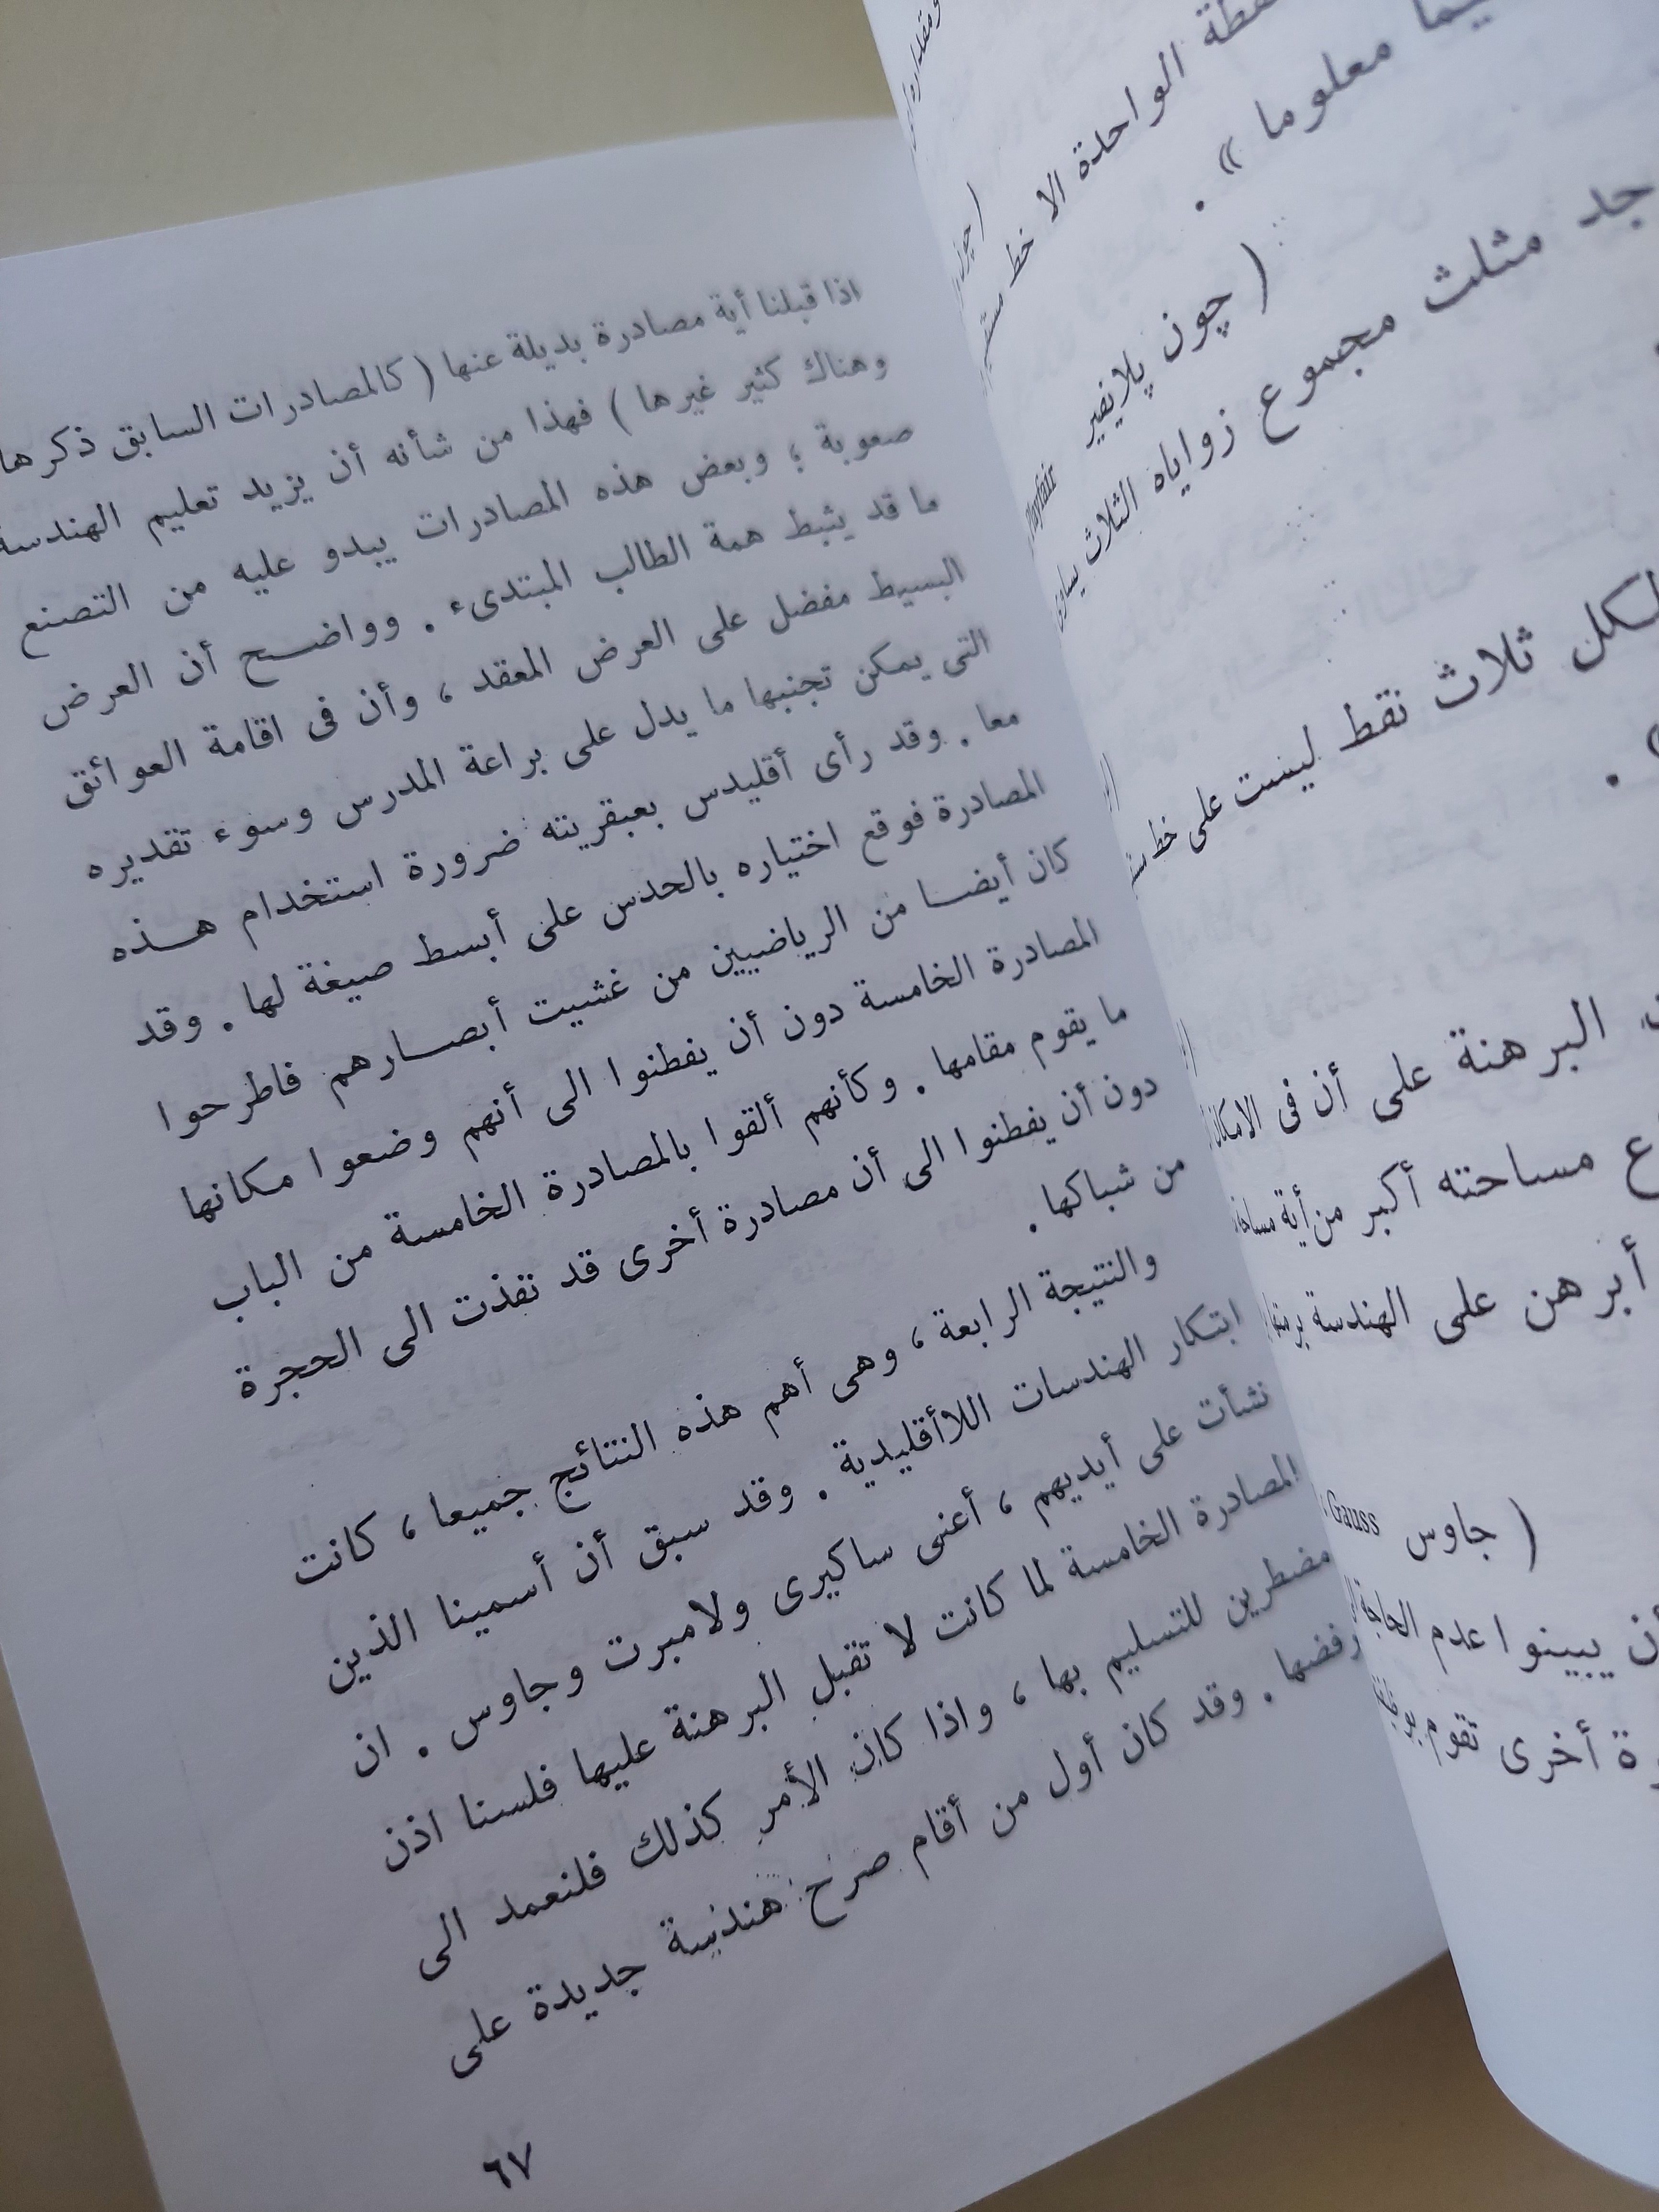 ـقطة الواحدة الا خط
ـيما معلوما » .
( چون پلايفير Playfair
ـجد مثلث مجموع زواياه الثلاث يساوى
لكل ثلاث نقط ليست على خط
البرهنة على أن فى الامكان
مساحته أكبر من أية مساحة
أبرهن على الهندسة برمتها
( جاوس Gauss
أن يبينوا عدم الحاجة
أخرى تقوم
اذا قبلنا أية مصادرة بديلة عنها ( كالمصادرات السابق ذكرها
وهناك كثير غيرها ) فهذا من شأنه أن يزيد تعليم الهندسة
صعوبة ؛ وبعض هذه المصادرات يبدو عليه من التصنع
ما قد يثبط همة الطالب المبتدىء . وواضح أن العرض
البسيط مفضل على العرض المعقد ، وأن فى اقامة العوائق
التى يمكن تجنبها ما يدل على براعة المدرس وسوء تقديره
معا . وقد رأى أقليدس بعبقريته ضرورة استخدام هذه
المصادرة فوقع اختياره بالحدس على أبسط صيغة لها . وقد
كان أيضا من الرياضيين من غشيت أبصارهم فاطرحوا
المصادرة الخامسة دون أن يفطنوا الى أنهم وضعوا مكانها
ما يقوم مقامها . وكأنهم ألقوا بالمصادرة الخامسة من الباب
دون أن يفطنوا الى أن مصادرة أخرى قد نفذت الى الحجرة
من شباكها .
والنتيجة الرابعة ، وهى أهم هذه النتائج جميعا ، كانت
ابتكار الهندسات اللاأقليدية . وقد سبق أن أسمينا الذين
نشأت على أيديهم ، أعنى ساكيرى ولامبرت وجاوس . ان
المصادرة الخامسة لما كانت لا تقبل البرهنة عليها فلسنا اذن
مضطرين للتسليم بها ، واذا كان الأمر كذلك فلنعمد الى
رفضها . وقد كان أول من أقام صرح هندسة جديدة على
٦٧